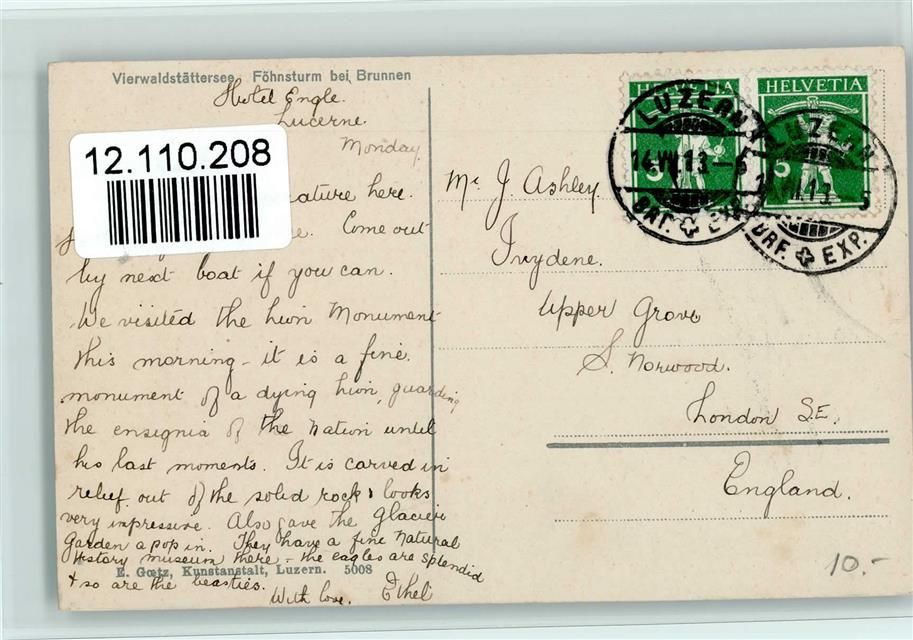 Vierwaldstättersee Föhnsturm bei Brunnen
Hotel Engle.
Lucerne.
Monday
12.110.208
ature here.
Come out
by next boat if you can.
We visited the Lion Monument
this morning - it is a fine
monument of a dying lion, guarding
the ensignia of the nation until
his last moments. It is carved in
relief out of the solid rock & looks
very impressive. Also gave the Glacier
Garden a pop in. They have a fine Natural
History museum there - the eagles are splendid
& so are the beasties.
With love. Ethel
E. Goetz, Kunstanstalt, Luzern. 5008
HELVETIA
HELVETIA
5
5
LUZERN
BRF. EXP.
LUZERN
BRF. EXP.
Mr J. Ashley.
Ivydene.
Upper Grove
S. Norwood.
London S.E.
England.
10.-